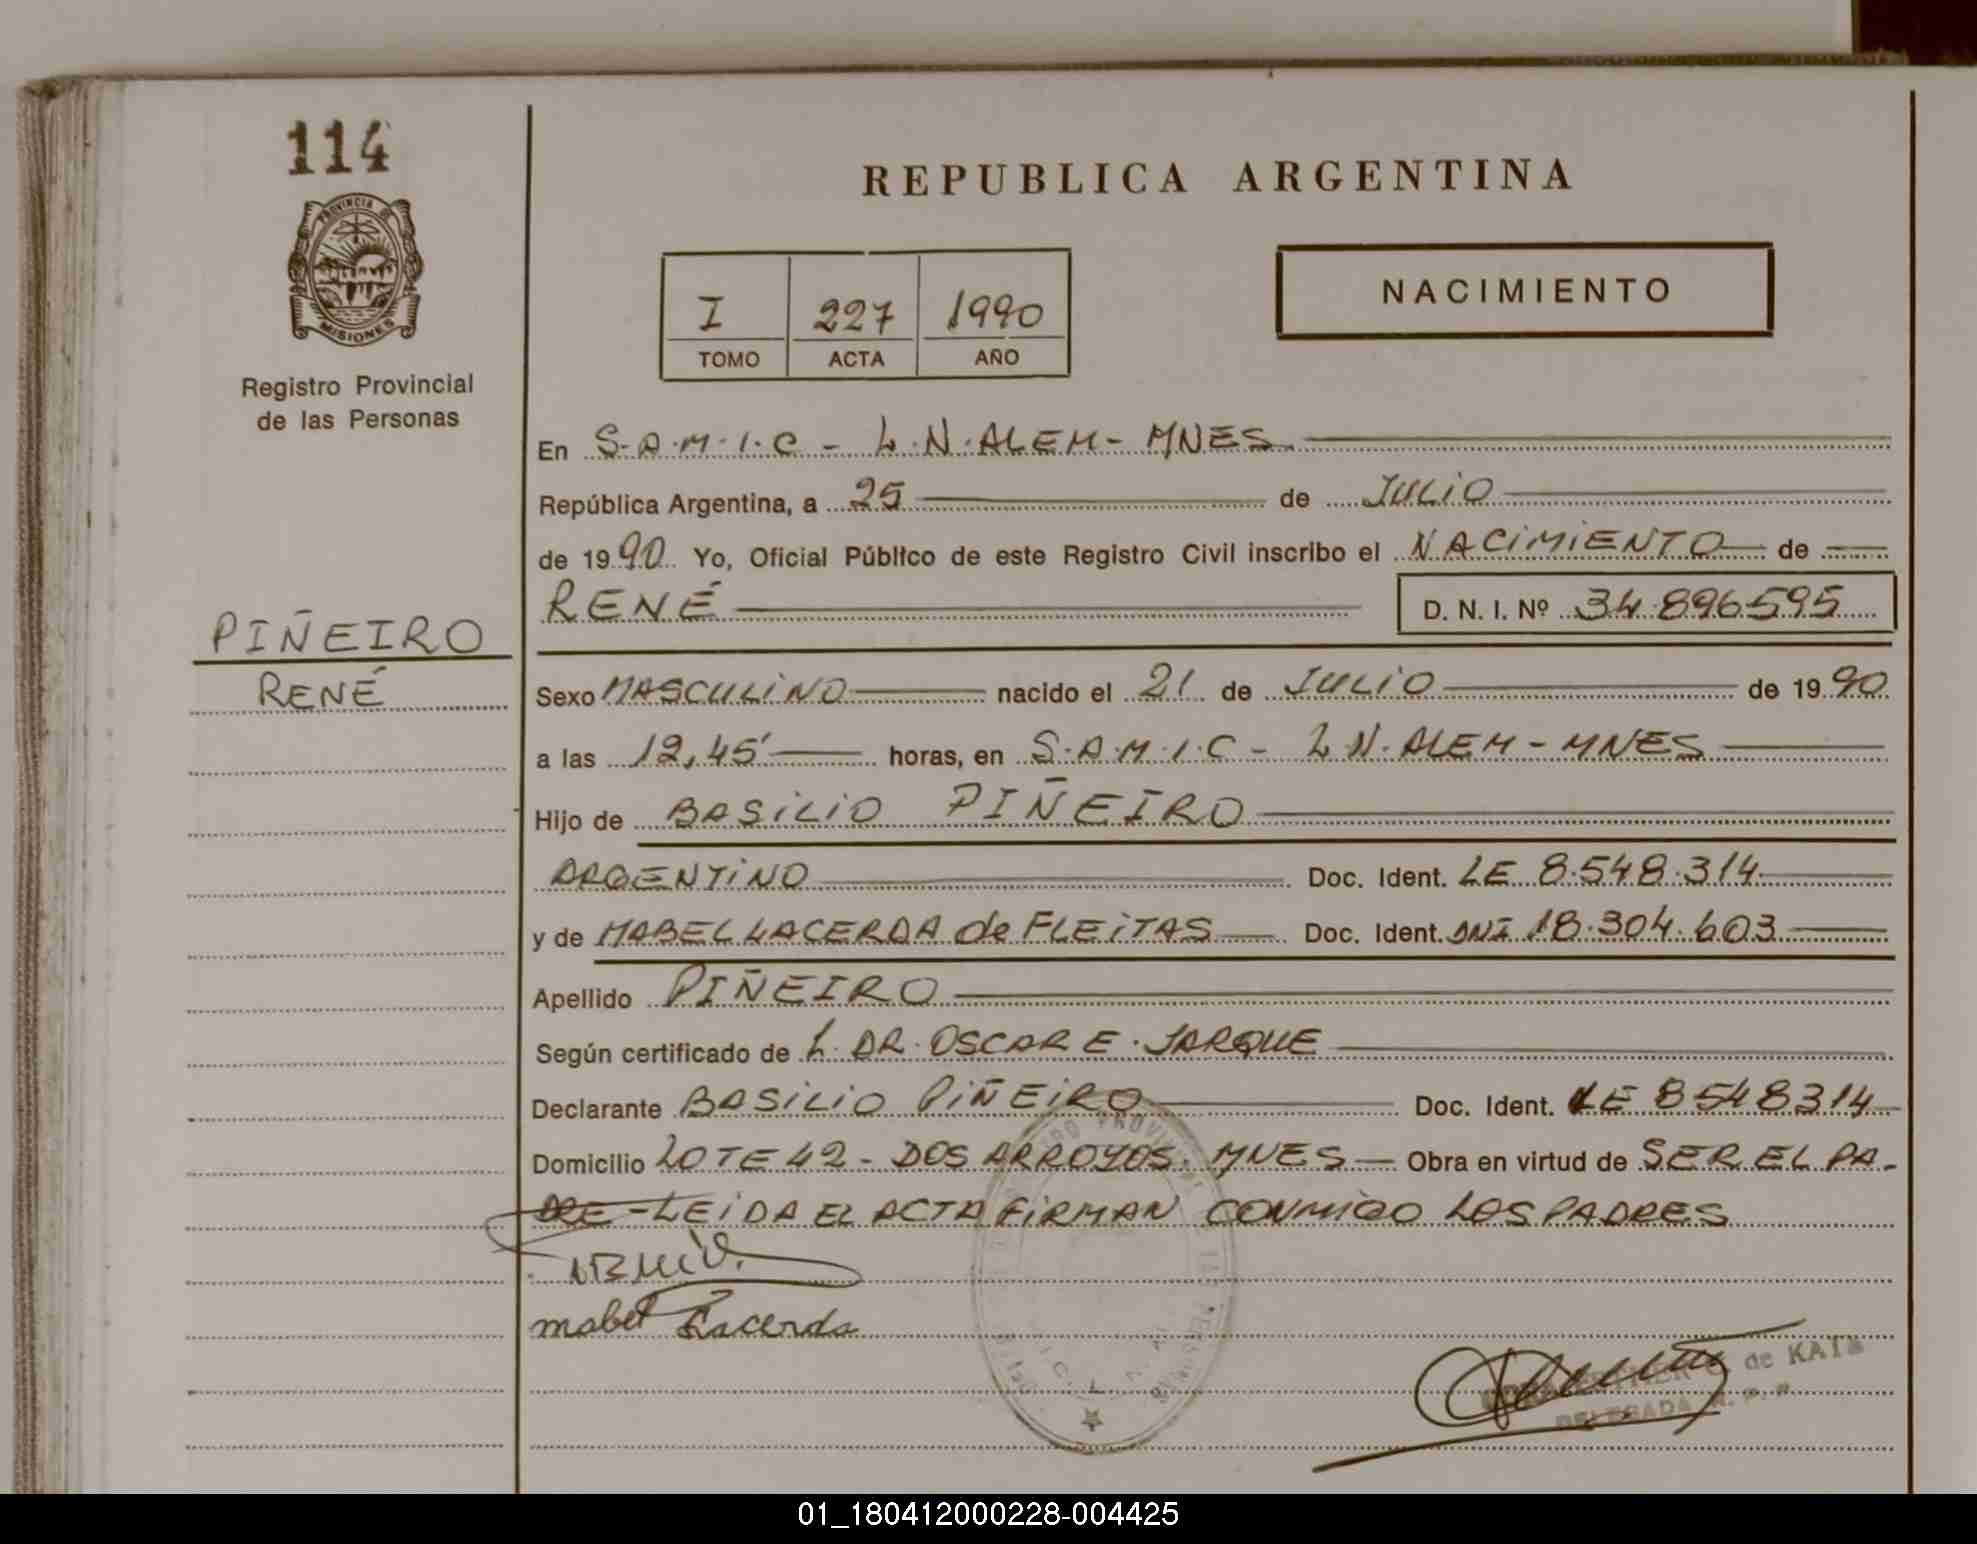 114
PROVINCIA DE
MISIONES
Registro Provincial
de las Personas
PIÑEIRO
RENÉ
REPUBLICA ARGENTINA
I 227 1990
TOMO ACTA AÑO
NACIMIENTO
En S.A.M.I.C - L.N.ALEM - MNES.
República Argentina, a 25 de JULIO
de 1990 Yo, Oficial Público de este Registro Civil inscribo el NACIMIENTO de
RENÉ D. N. I. Nº 34.896595
Sexo MASCULINO nacido el 21 de JULIO de 1990
a las 12,45' horas, en S.A.M.I.C - L.N.ALEM - MNES
Hijo de BASILIO PIÑEIRO
ARGENTINO Doc. Ident. LE 8.548.314
y de MABEL LACERDA de FLEITAS Doc. Ident. DNI 18.304.603
Apellido PIÑEIRO
Según certificado de L. DR. OSCAR E. JARQUE
Declarante BASILIO PIÑEIRO Doc. Ident. LE 8548314
Domicilio LOTE 42 - DOS ARROYOS. MNES - Obra en virtud de SER EL PA-
DRE - LEIDA EL ACTA FIRMAN CONMIGO LOS PADRES
Mabel Lacerda
de KAIS
DELEGADA R. P. P.
01_180412000228-004425